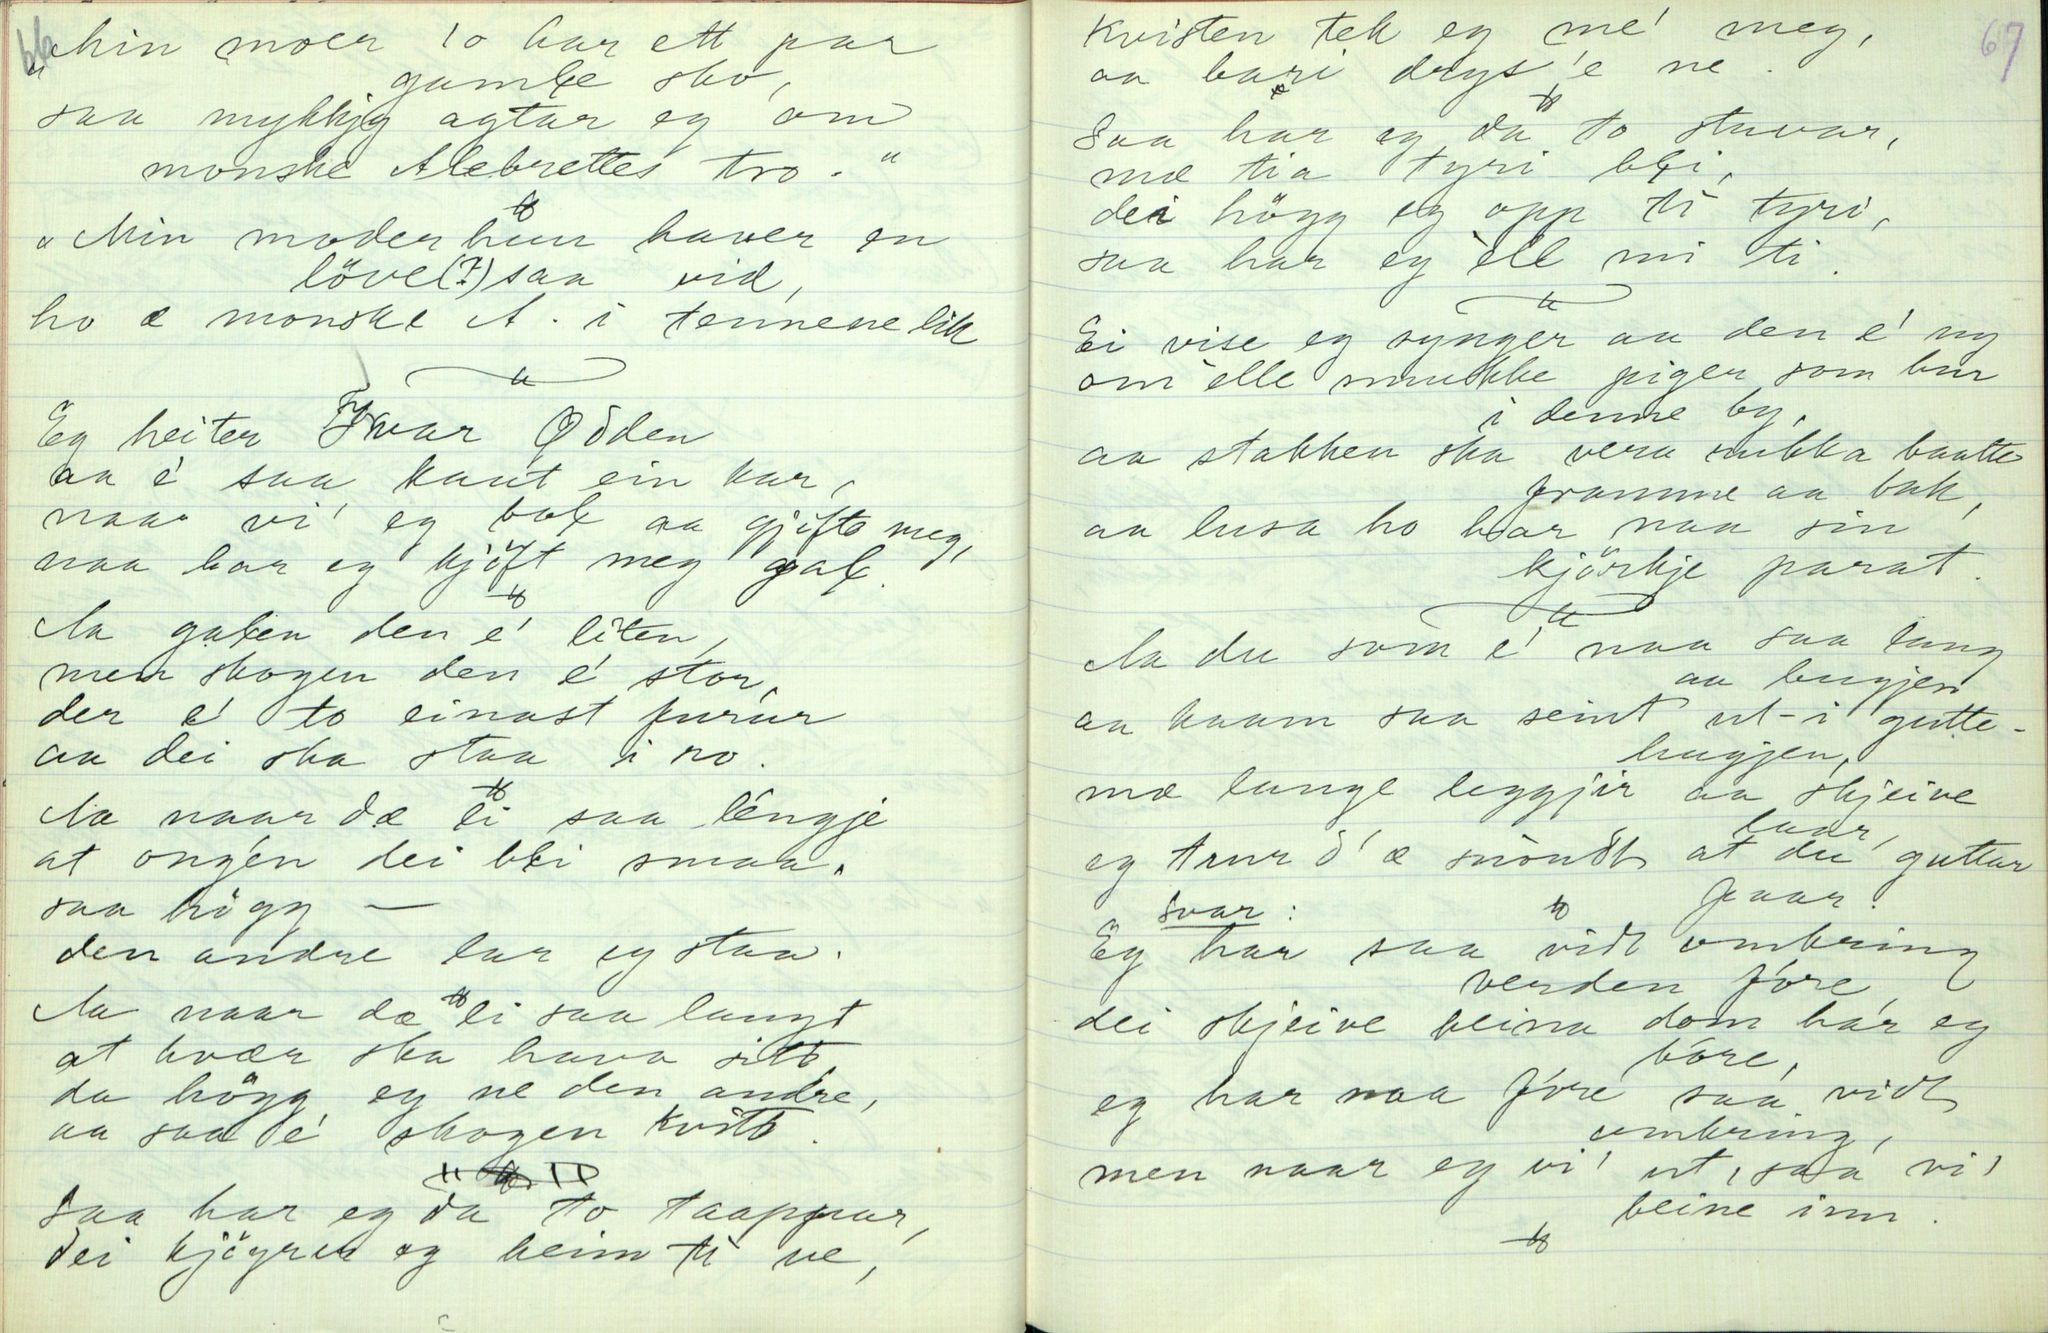 66
"Min moer 'o har ett par
gamle sko,
saa mykkjy agtar eg om
monske Alebrettes tro."
"Min moder hun haver en
löve(?) saa vid,
ho æ monske A. i tennene lik
Eg heiter Ivar Ødden
aa é saa kaut ein kar,
naar vi' eg bol aa gjifte meg,
naa har eg kjöft meg gal.
Aa galen den é liten,
men skogen den é stor,
der é to einast furur
aa dei ska staa i ro.
Aa naar dæ li saa léngje
at ongén dei bli smaa.
saa högg —
den andre lar eg staa.
Aa naar dæ li saa langt
at kvær ska hava sitt,
da högg eg ne den andre,
aa saa é skogen kvitt.
Saa har eg da to taappar,
dei kjöyrer eg heim ti ve,
67
Kvisten tek eg mé meg,
aa bari drys'e ne.
Saa har eg da to stuvar,
mæ tia tyri bli,
dei högg eg opp ti tyri,
saa har eg ell mi ti.
Ei vise eg synger aa den é ny
om elle smukke piger som bur
i denne by,
aa stakken ska vera sukka baatte
framme aa bak,
aa lusa ho har naa sin
kjörkje parat.
Aa du som é naa saa lang
aa bugjen
aa kaam saa seint ut-i gutte-
hugjen,
mæ lange leggjir aa skjeive
laar,
eg trur d'æ snöudt at du guttar
faar.
Svar:
Eg har saa vidt ombring
verden före
dei skjeive beina dom har eg
böre,
eg har naa före saa vidt
ombring,
men naar eg vi' ut, saa vi'
beine inn.